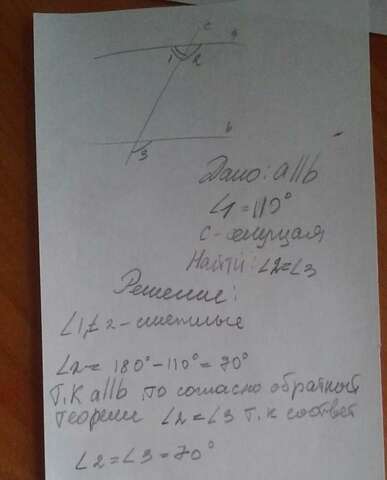 c
a
1 2
b
3
Дано: a||b
∠1=110°
c-секущая
Найти: ∠2=∠3
Решение:
∠1,∠2-смежные
∠2= 180°-110°=70°
Т.К a||b, то согласно обратной
теореме ∠2=∠3 т.к соответ
∠2=∠3=70°